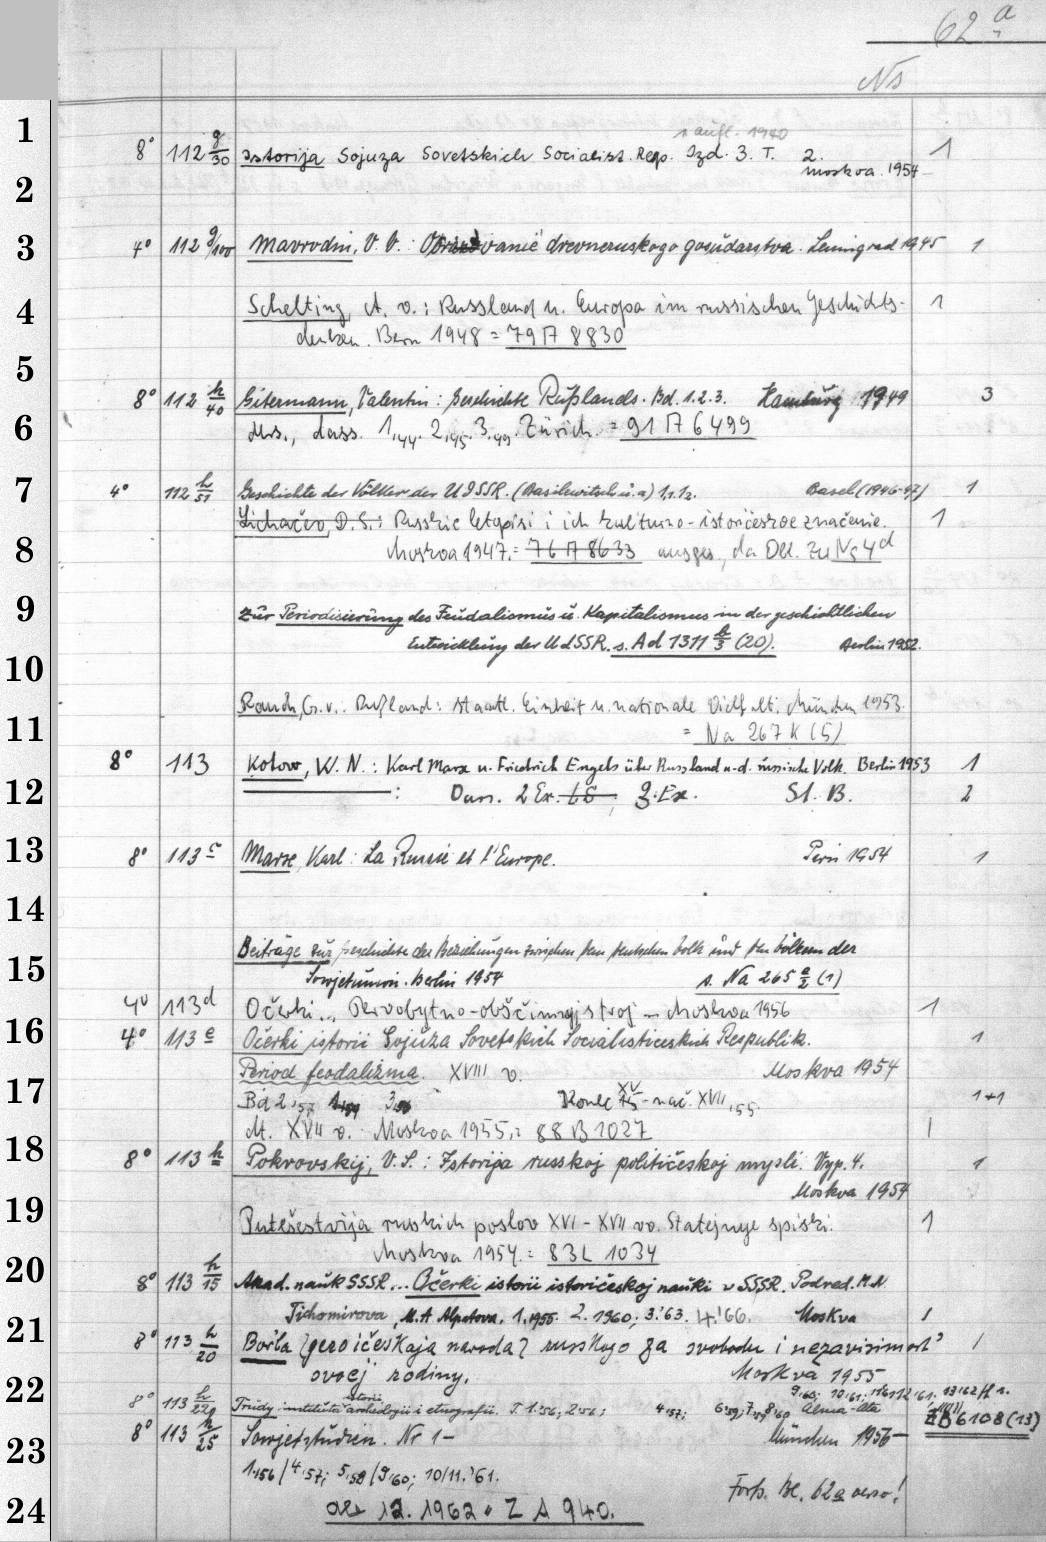 62 a
Ns
1
1 aufl. 1940
8° 112 g/30 Istorija Sojuza Sovetskich Socialist. Resp. Izd. 3. T. 2. 1
Moskva 1954
2
3 4° 112 g/100 Mavrodin, V. V.: Obrazovanie drevnerusskogo gosudarstva. Leningrad 1945 1
4 Schelting, A. v.: Russland u. Europa im russischen Geschichts- 1
denken. Bern 1948 = 79 A 8830
5
8° 112 h/40 Gitermann, Valentin: Geschichte Rußlands. Bd. 1.2.3. Hamburg 1949 3
6 ders., dass. 1,44. 2,45. 3,49. Zürich. = 91 A 6499
7 4° 112 h/51 Geschichte der Völker der UdSSR. (Basilewitsch u. a) 1,1.2. Basel (1946-47) 1
Lichačev, D. S.: Russkie letopisi i ich kulturno-istoričeskoe značenie. 1
8 Moskva 1947. = 76 A 8633 ausges., da Dbl. zu Ns 4d
9 Zur Periodisierung des Feudalismus u. Kapitalismus in der geschichtlichen
Entwicklung der UdSSR. s. Ad 1311 h/3 (20). Berlin 1952.
10
Rauch, G. v.: Rußland: staatl. Einheit u. nationale Vielfalt. München 1953.
11 = Na 267 k (5)
8° 113 Kotow, W. N.: Karl Marx u. Friedrich Engels über Russland u. d. russische Volk. Berlin 1953 1
12 : Dass. 2 Ex. LS; 3. Ex. St. B. 2
13 8° 113 c Marx, Karl: La Russie et l'Europe. Paris 1954 1
14
Beiträge zur Geschichte der Beziehungen zwischen dem deutschen Volk und den Völkern der
15 Sowjetunion. Berlin 1954 s. Na 265 a/2 (1)
4° 113 d Očerki... Pervobytno-obščinnyj stroj – Moskva 1956 1
16 4° 113 e Očerki istorii Sojuza Sovetskich Socialističeskich Respublik. 1
Period feodalizma. XVIII v. Moskva 1954
17 Bd 2,57 3,56 Konec XV - nač. XVII,55. 1+1
dt. XVII v. Moskva 1955,= 88 B 1027 1
18 8° 113 h Pokrovskij, V. S.: Istorija russkoj političeskoj mysli. Vyp. 4. 1
Moskva 1954
19 Putešestvija russkich poslov XVI - XVII vv. Statejnye spiski. 1
Moskva 1954. = 83 L 1034
20 8° 113 h/15 Akad. nauk SSSR... Očerki istorii istoričeskoj nauki v SSSR. Pod red. M. N.
Tichomirova, M. A. Alpatova. 1.1955. 2. 1960; 3.'63. 4.'66. Moskva 1
21 8° 113 h/20 Bor'ba [geroičeskaja naroda] russkogo za svobodu i nezavisimost' 1
svoej rodiny. Moskva 1955
22 9,60; 10,61; 11,61 12,'61. 13,'62 ff s.
istorii
8° 113 h/22g Trudy instituta archeologii i etnografii. T. 1.'56; 2,'56; 4,'57; 6,'59; 7,'59 8,'60 Alma-Ata
ZB 6108 (13)
23 8° 113 h/25 Sowjetstudien. Nr 1- München 1956-
1,'56/4,'57; 5,'58/9,'60; 10/11.'61.
Forts. Bl. 62a verso!
24 ab 12. 1962 = Z A 940.